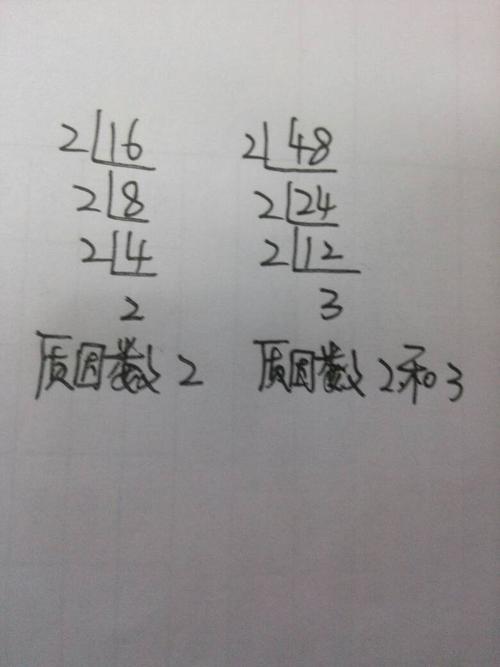 2 16 2 48
2 8 2 24
2 4 2 12
2 3
质因数 2 质因数 2和3